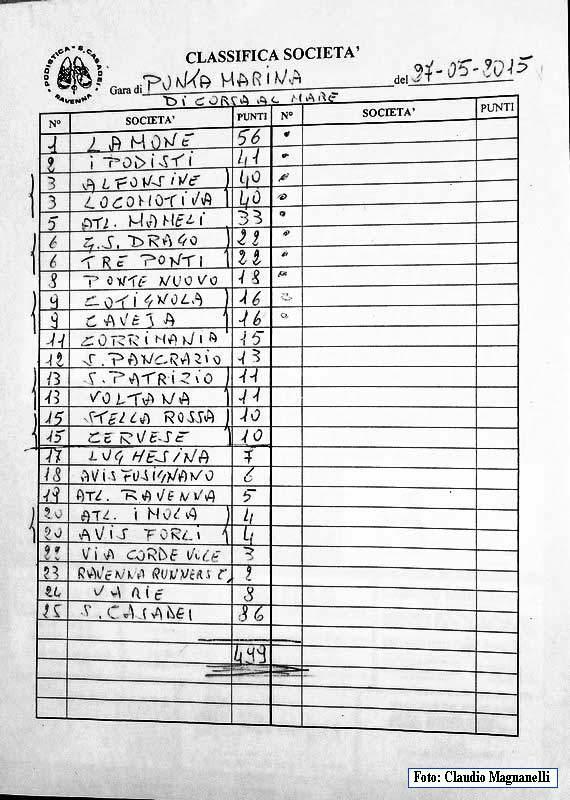 PODISTICA - S. CASADEI
RAVENNA
CLASSIFICA SOCIETA'
Gara di PUNTA MARINA del 27-05-2015
DI CORSA AL MARE
N° SOCIETA' PUNTI N° SOCIETA' PUNTI
1 LAMONE 56
2 I PODISTI 41
3 ALFONSINE 40
3 LOCOMOTIVA 40
5 ATL. MAMELI 33
6 G.S. DRAGO 22
6 TRE PONTI 22
8 PONTE NUOVO 18
9 COTIGNOLA 16
9 CAVEJA 16
11 CORRIMANIA 15
12 S. PANCRAZIO 13
13 S. PATRIZIO 11
13 VOLTANA 11
15 STELLA ROSSA 10
15 CERVESE 10
17 LUGHESINA 7
18 AVIS FUSIGNANO 6
19 ATL. RAVENNA 5
20 ATL. IMOLA 4
20 AVIS FORLI 4
22 VIA CORDE VOLE 3
23 RAVENNA RUNNERS C. 2
24 VARIE 8
25 S. CASADEI 86
499
Foto: Claudio Magnanelli